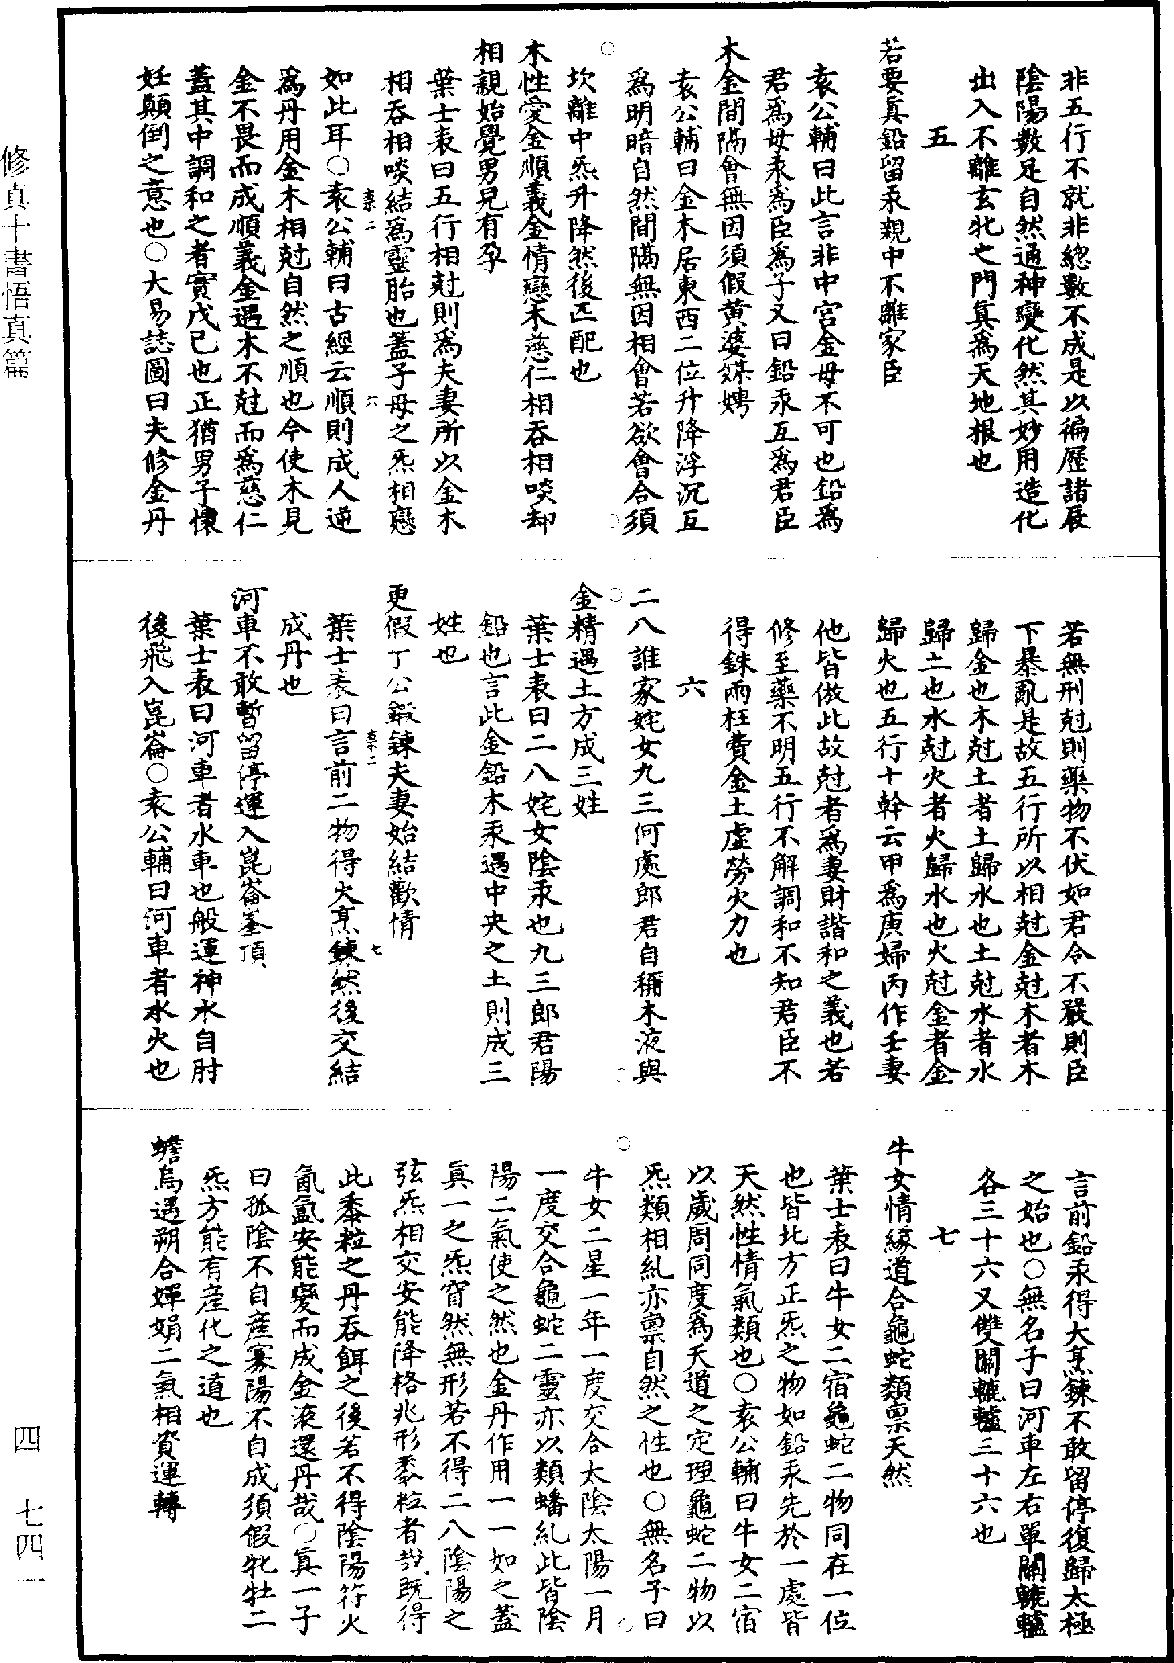 非五行不就非總數不成是以徧歷諸辰
陰陽數足自然通神變化然其妙用造化
出入不離玄牝之門真為天地根也
五
若要真鉛留汞親中不離家臣
袁公輔曰此言非中宮金母不可也鉛為
君為母汞為臣為子又曰鉛汞互為君臣
木金間隔會無因須假黃婆媒娉
袁公輔曰金木居東西二位升降浮沉互
為明暗自然間隔無因相會若欲會合須
坎離中炁升降然後匹配也
木性愛金順義金情戀木慈仁相吞相啖却
相親始覺男兒有孕
葉士表曰五行相尅則為夫妻所以金木
相吞相啖結為靈胎也蓋子母之炁相戀
如此耳○袁公輔曰古經云順則成人逆
為丹用金木相尅自然之順也今使木見
金不畏而成順義金遇木不尅而為慈仁
蓋其中調和之者實戊己也正猶男子懷
妊顛倒之意也○大易誌圖曰夫修金丹
若無刑尅則藥物不伏如君令不嚴則臣
下暴亂是故五行所以相尅金尅木者木
歸金也木尅土者土歸水也土尅水者水
歸二也水尅火者火歸水也火尅金者金
歸火也五行十幹云甲為庚婦丙作壬妻
他皆倣此故尅者為妻財諧和之義也若
修至藥不明五行不解調和不知君臣不
得銖兩枉費金土虛勞火力也
六
二八誰家姹女九三何處郎君自稱木液與
金精遇土方成三姓
葉士表曰二八姹女陰汞也九三郎君陽
鉛也言此金鉛木汞遇中央之土則成三
姓也
更假丁公鍛鍊夫妻始結歡情
葉士表曰言前二物得火烹鍊然後交結
成丹也
河車不敢暫留停運入崑崙峯頂
葉士表曰河車者水車也般運神水自肘
後飛入崑崙○袁公輔曰河車者水火也
言前鉛汞得大烹鍊不敢留停復歸太極
之始也○無名子曰河車左右單關轆轤
各三十六又雙關轆轤三十六也
七
牛女情緣道合龜蛇類禀天然
葉士表曰牛女二宿龜蛇二物同在一位
也皆北方正炁之物如鉛汞先於一處皆
天然性情氣類也○袁公輔曰牛女二宿
以歲周同度為天道之定理龜蛇二物以
炁類相糺亦禀自然之性也○無名子曰
牛女二星一年一度交合太陰太陽一月
一度交合龜蛇二靈亦以類蟠糺此皆陰
陽二氣使之然也金丹作用一一如之蓋
真一之炁窅然無形若不得二八陰陽之
弦炁相交安能降格兆形黍粒者哉既得
此黍粒之丹吞餌之後若不得陰陽符火
氤氳安能變而成金液還丹哉○真一子
曰孤陰不自產寡陽不自成須假牝牡二
炁方能有產化之道也
蟾烏遇朔合嬋娟二氣相資運轉
修真十書悟真篇
四　七四一